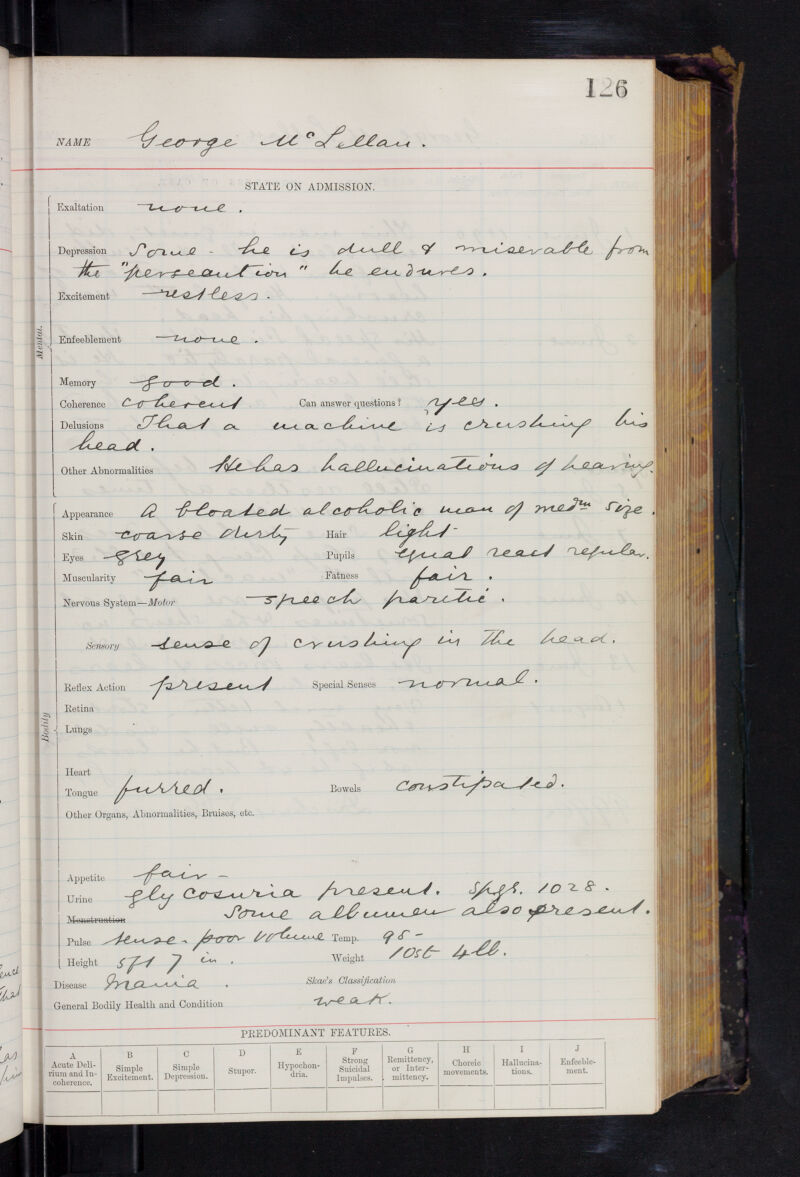 126
NAME George McLellan.
STATE ON ADMISSION.
Mental.
Exaltation none.
Depression Some - he is dull & miserable from
the "persecution" he endures.
Excitement restless.
Enfeeblement none.
Memory good.
Coherence coherent Can answer questions? yes.
Delusions That a machine is crushing his
head.
Other Abnormalities He has hallucinations of hearing.
Bodily
Appearance A bloated alcoholic man of medm size.
Skin coarse dirty Hair light
Eyes grey Pupils equal react regular.
Muscularity fair Fatness fair.
Nervous System—Motor speech paretic.
Sensory sense of crushing in the head.
Reflex Action present Special Senses normal.
Retina
Lungs
Heart
Tongue furred. Bowels constipated.
Other Organs, Abnormalities, Bruises, etc.
Appetite fair -
Urine glycosuria present. Spgr. 1028.
Menstruation Some albumen also present.
Pulse tense - poor volume Temp. 98-
Height 5ft 7 in. Weight 10st 4lb.
Disease Mania. Skae's Classification
General Bodily Health and Condition weak.
PREDOMINANT FEATURES.
A B C D E F G H I J
Acute Delirium and Incoherence. Simple Excitement. Simple Depression. Stupor. Hypochondria. Strong Suicidal Impulses. Remittency, or Intermittency. Choreic movements. Hallucinations. Enfeeblement.